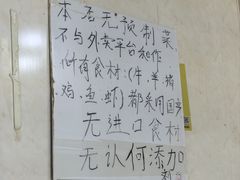 本店无预制菜
不与外卖平台合作
所有食材:(牛、羊、猪
、鸡、鱼、虾)都采用国产
无进口食材
无认何添加
剂